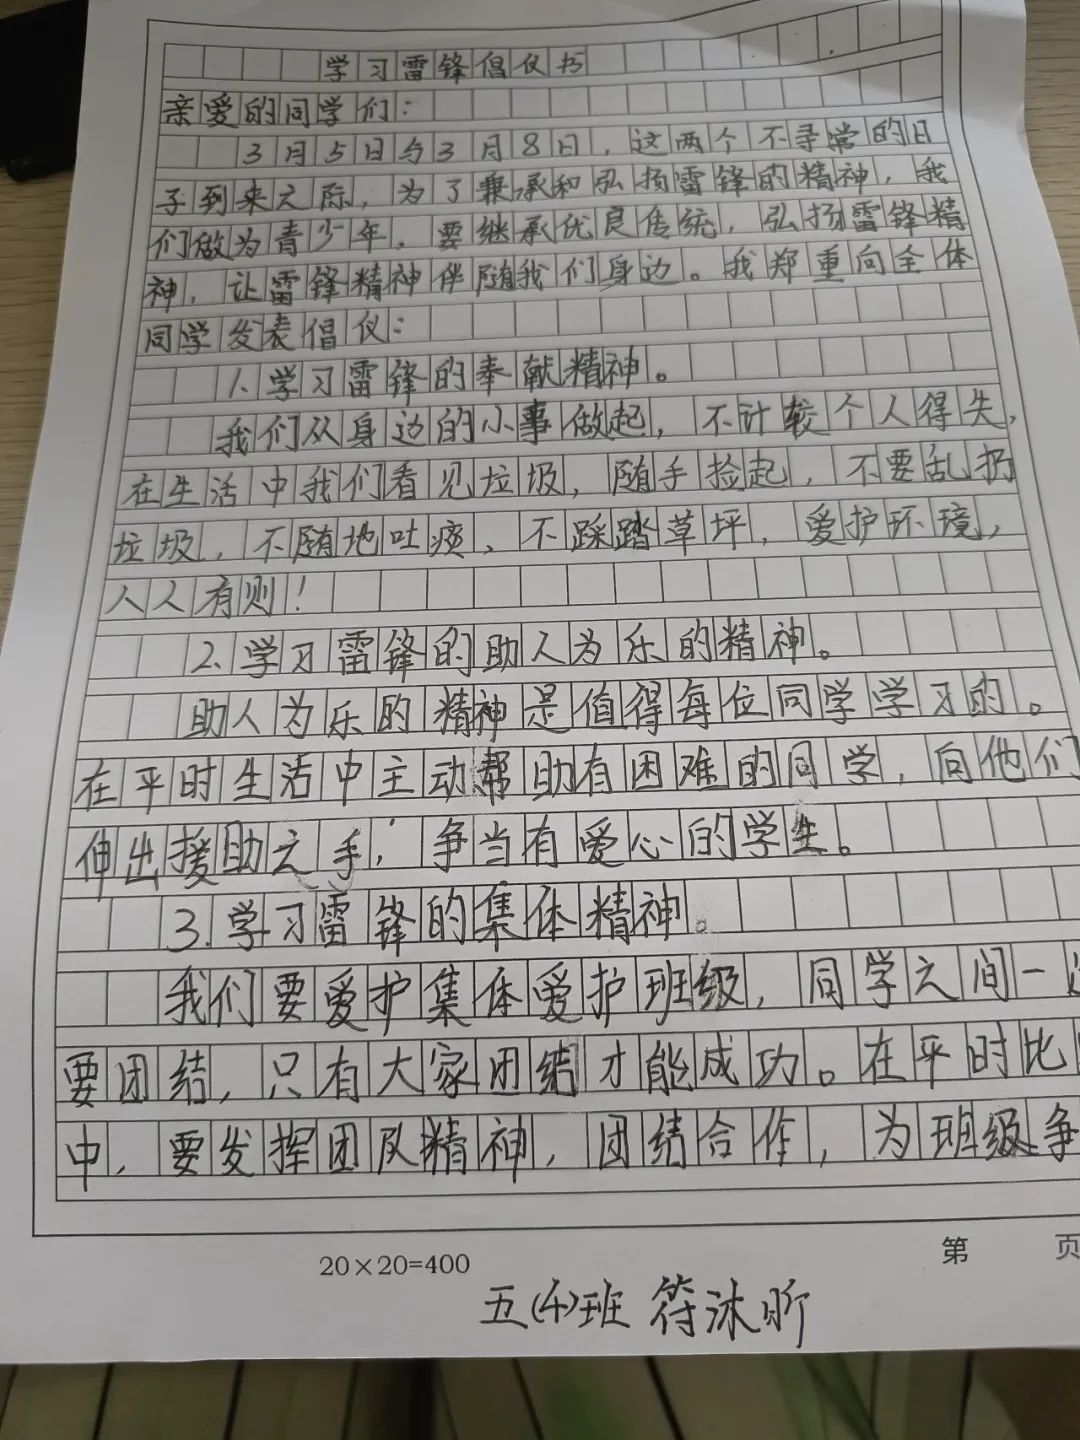 学习雷锋倡仪书
亲爱的同学们：
3月5日与3月8日，这两个不寻常的日
子到来之际，为了秉承和弘扬雷锋的精神，我
们做为青少年，要继承优良传统，弘扬雷锋精
神，让雷锋精神伴随我们身边。我郑重向全体
同学发表倡仪：
1.学习雷锋的奉献精神。
我们从身边的小事做起，不计较个人得失，
在生活中我们看见垃圾，随手捡起，不要乱扔
垃圾，不随地吐痰、不踩踏草坪，爱护环境，
人人有则！
2.学习雷锋的助人为乐的精神。
助人为乐的精神是值得每位同学学习的。
在平时生活中主动帮助有困难的同学，向他们
伸出援助之手，争当有爱心的学生。
3.学习雷锋的集体精神。
我们要爱护集体爱护班级，同学之间一
要团结，只有大家团结才能成功。在平时比
中，要发挥团队精神，团结合作，为班级争
20×20=400
第 页
五(4)班 符沐昕